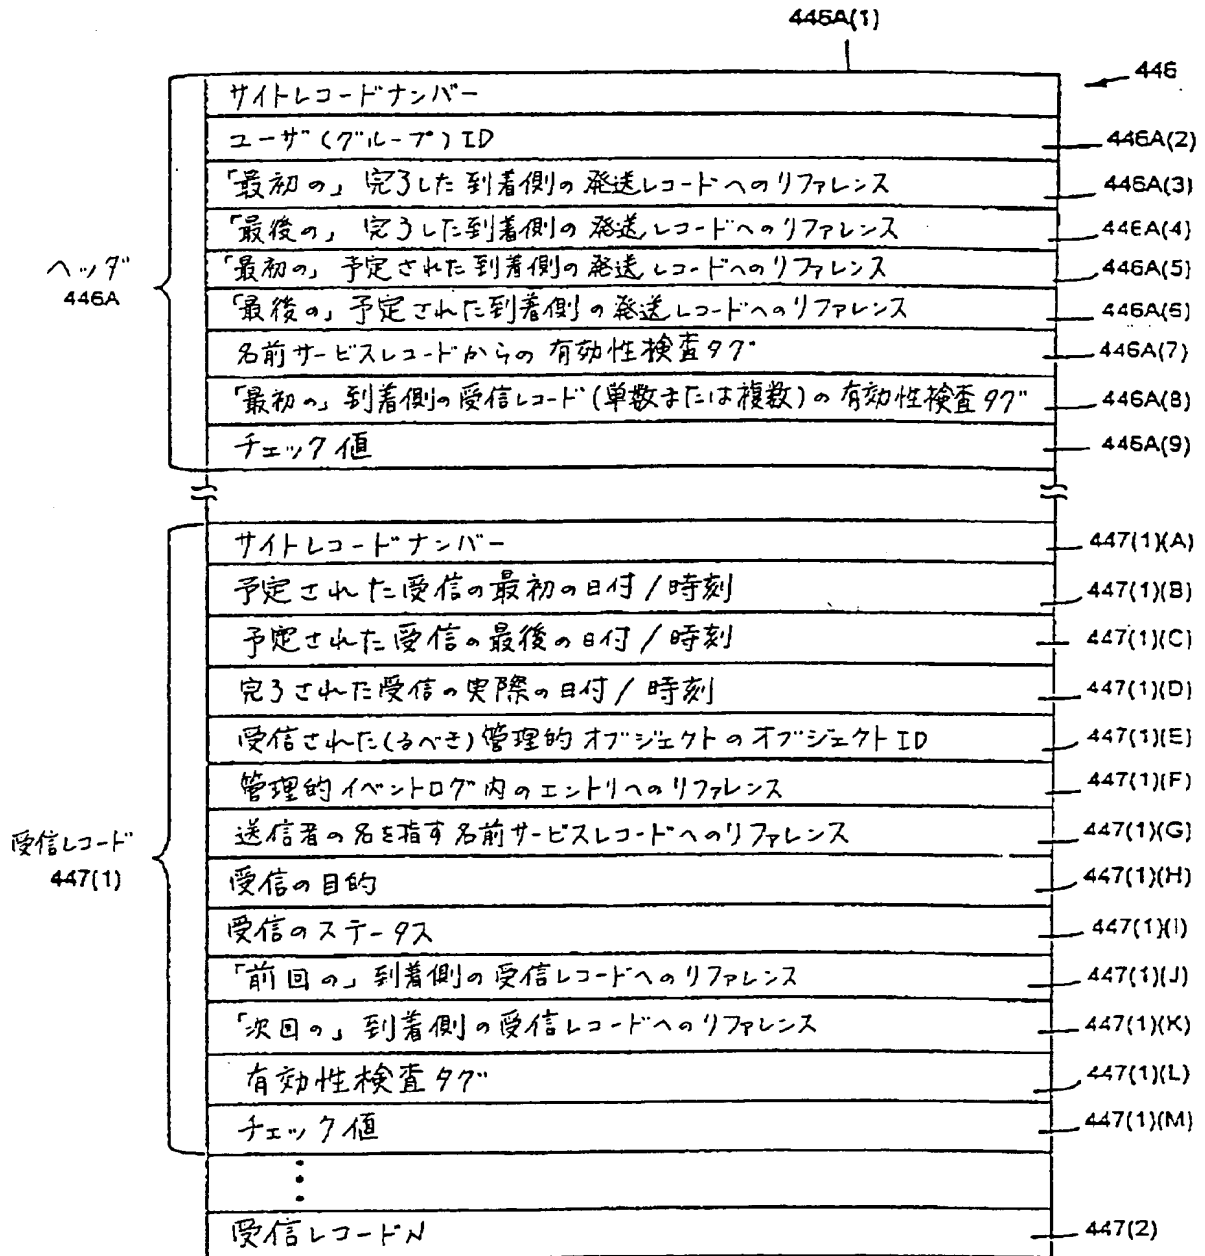 446A(1)
446
サイトレコードナンバー
ユーザ(グループ)ID
446A(2)
「最初の」完了した到着側の発送レコードへのリファレンス
446A(3)
「最後の」完了した到着側の発送レコードへのリファレンス
446A(4)
ヘッダ
446A
「最初の」予定された到着側の発送レコードへのリファレンス
446A(5)
「最後の」予定された到着側の発送レコードへのリファレンス
446A(6)
名前サービスレコードからの有効性検査タグ
446A(7)
「最初の」到着側の受信レコード(単数または複数)の有効性検査タグ
446A(8)
チェック値
446A(9)
サイトレコードナンバー
447(1)(A)
予定された受信の最初の日付/時刻
447(1)(B)
予定された受信の最後の日付/時刻
447(1)(C)
完了された受信の実際の日付/時刻
447(1)(D)
受信された(るべき)管理的オブジェクトのオブジェクトID
447(1)(E)
管理的イベントログ内のエントリへのリファレンス
447(1)(F)
送信者の名を指す名前サービスレコードへのリファレンス
447(1)(G)
受信レコード
447(1)
受信の目的
447(1)(H)
受信のステータス
447(1)(I)
「前回の」到着側の受信レコードへのリファレンス
447(1)(J)
「次回の」到着側の受信レコードへのリファレンス
447(1)(K)
有効性検査タグ
447(1)(L)
チェック値
447(1)(M)
受信レコードN
447(2)